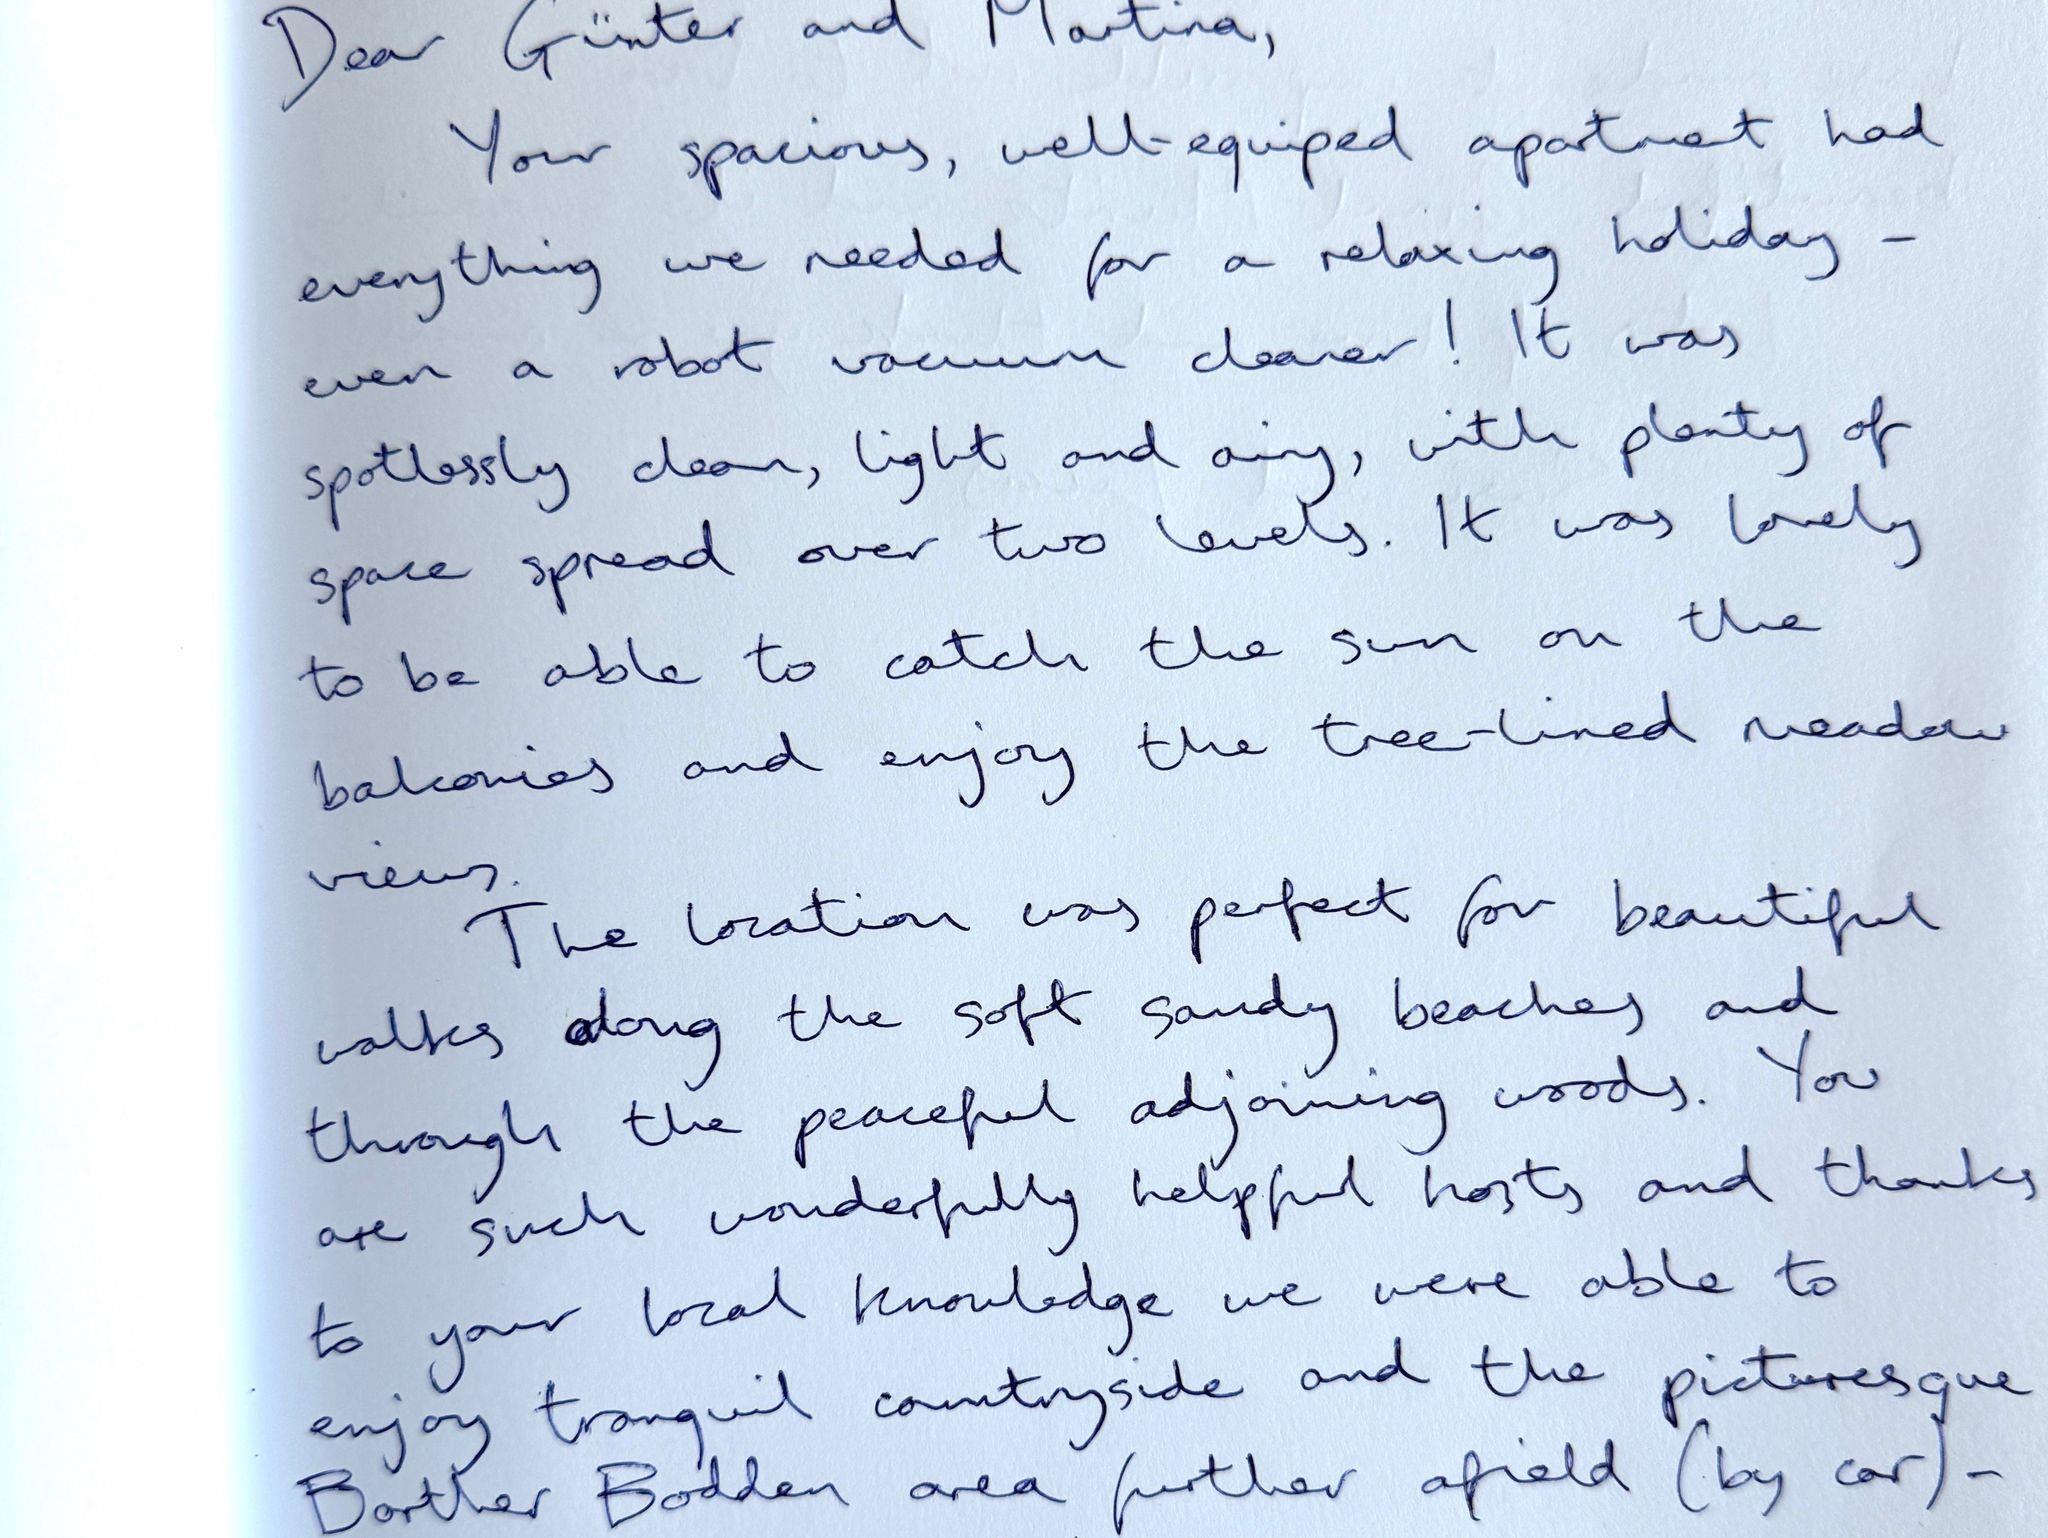 Dear Günter and Martina,
Your spacious, well-equiped apartment had
everything we needed for a relaxing holiday -
even a robot vacuum cleaner! It was
spotlessly clean, light and airy, with plenty of
space spread over two levels. It was lovely
to be able to catch the sun on the
balconies and enjoy the tree-lined meadow
views.
The location was perfect for beautiful
walks along the soft sandy beaches and
through the peaceful adjoining woods. You
are such wonderfully helpful hosts and thanks
to your local knowledge we were able to
enjoy tranquil countryside and the picturesque
Barther Bodden area further afield (by car) -